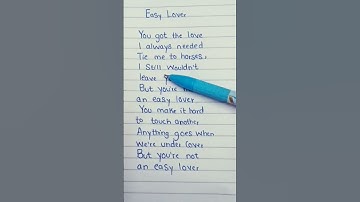 Easy Lover
You got the love
I always needed
Tie me to horses.
I Still Wouldn't
leave
But you're
an easy lover
You make it hard
to touch another
Anything goes when
We're under Cover
But you're not
an easy lover